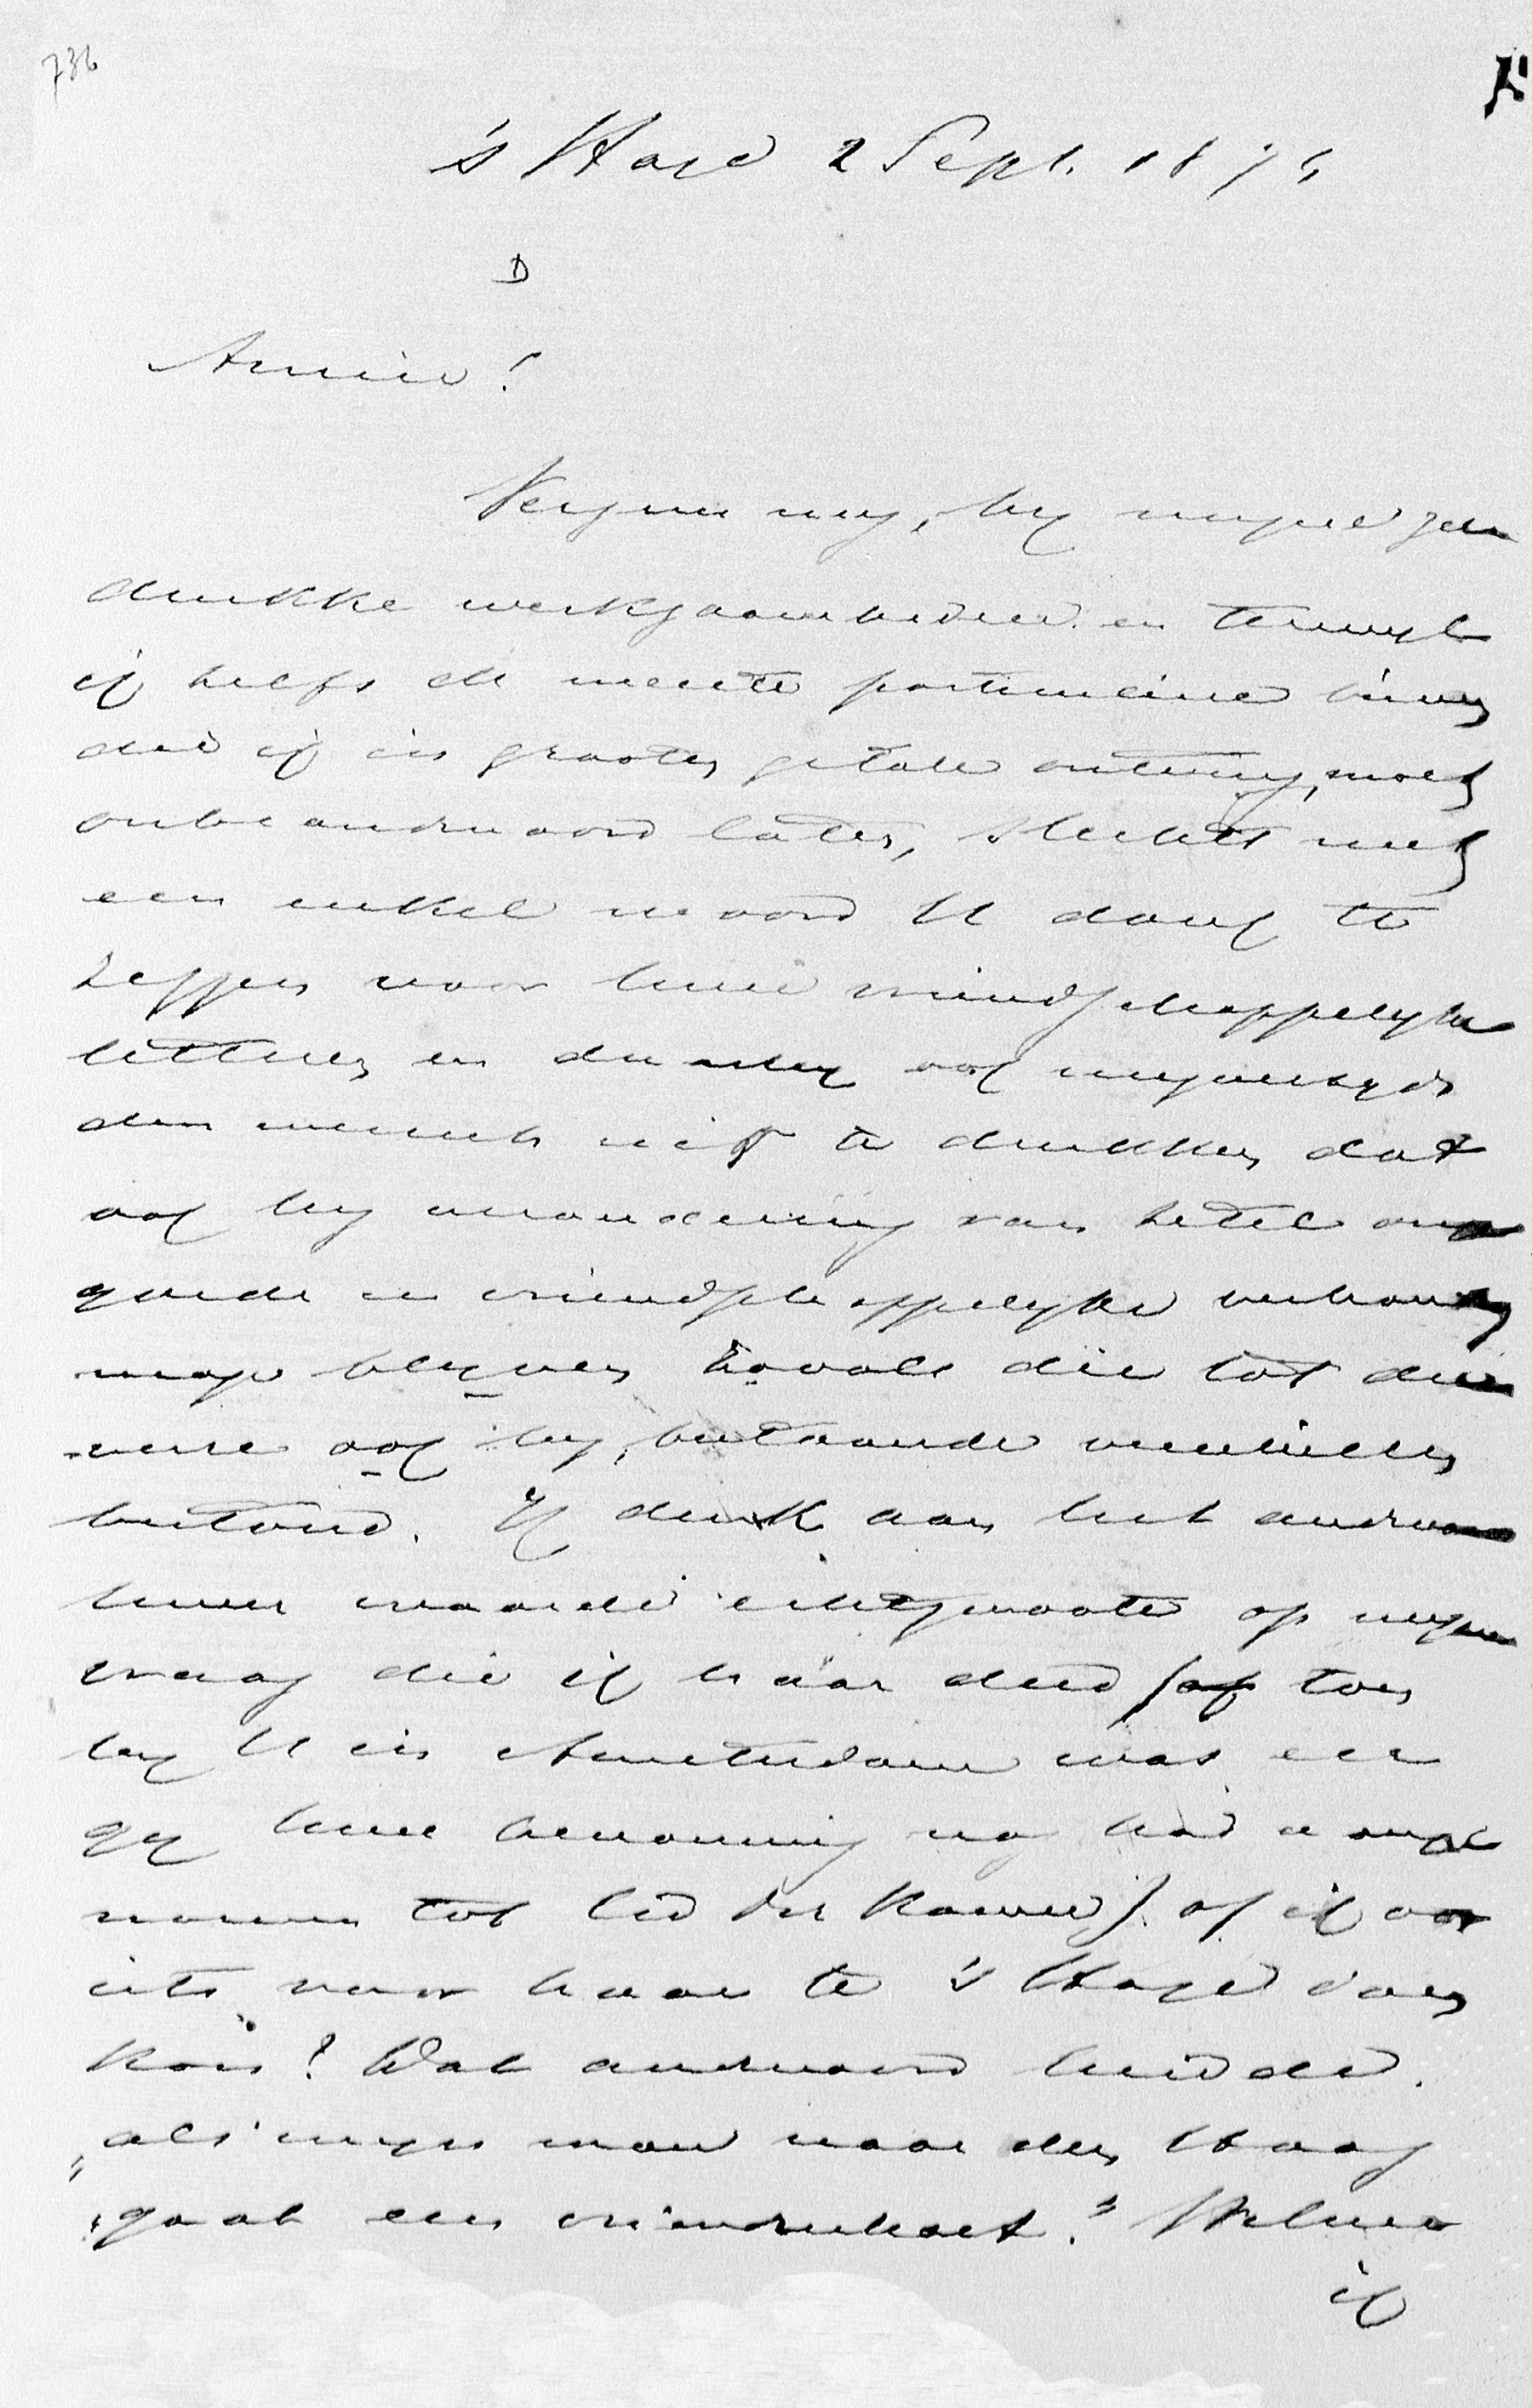 736
's Hage 2 Sept. 1874
D
Amice!
Vergun mij, bij mijne zeer
drukke werkzaamheden en terwyl
ik zelfs de meeste particuliere brieven
die ik in grooten getale ontving, moet
onbeandwoord laten, slechts met
een enkel woord U dank te
zeggen voor Uwe vriendschappelyke
letteren en daarbij ook mynerzyds
den wensch uit te drukken dat
ook by verandering van zetel onze
goede en vriendschappelyke verhouding
moge blyven zooals die tot dus
verre ook by bestaande
bestond. Ik denk aan het andwoord
Uwer waarde echtgenoote op myne
vraag die ik haar deed (toen
by U in Amsterdam was eer
gy Uwe benoeming nog had aange
nomen tot lid der Kamer) of ik ook
iets voor haar te 's Hage doen
kon? Dat andwoord luidde.
"als myn man naar den Haag
"gaat een vriend
ik